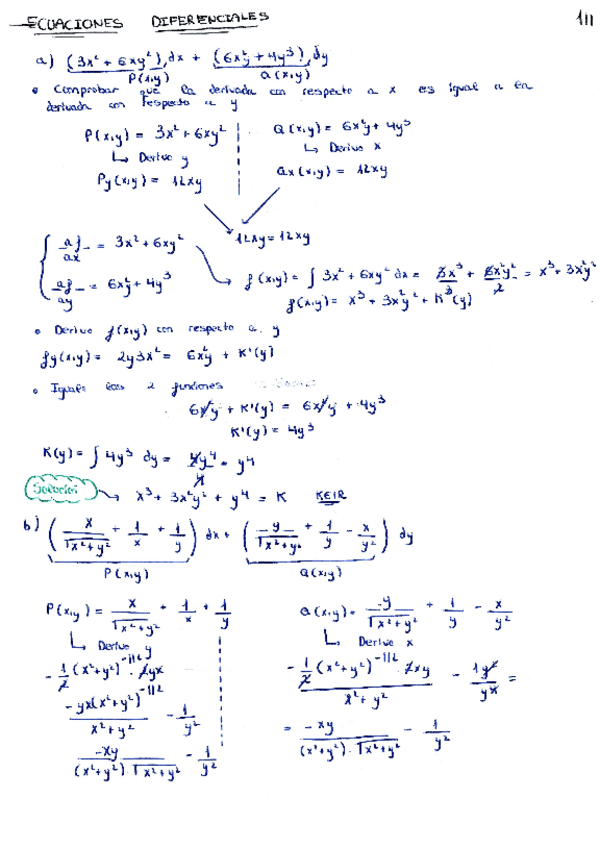 ECUACIONES DIFERENCIALES
a) (3x² + 6xy²) dx + (6x²y + 4y³) dy
P(x,y) Q(x,y)
• Comprobar que la derivada con respecto a x es igual a la
derivada con respecto a y
P(x,y) = 3x² + 6xy² Q(x,y) = 6x²y + 4y³
↳ Derivo y ↳ Derivo x
Py(x,y) = 12xy Qx(x,y) = 12xy
12xy = 12xy
∂f/∂x = 3x² + 6xy²
∂f/∂y = 6x²y + 4y³
f(x,y) = ∫ 3x² + 6xy² dx = 3x³/3 + 6x²y²/2 = x³ + 3x²y²
f(x,y) = x³ + 3x²y² + K(y)
• Derivo f(x,y) con respecto a y
fy(x,y) = 2y3x² = 6x²y + K'(y)
• Igualo las 2 funciones
6x²y + K'(y) = 6x²y + 4y³
K'(y) = 4y³
K(y) = ∫ 4y³ dy = 4y⁴/4 = y⁴
Solución → x³ + 3x²y² + y⁴ = K KEIR
b) (x/√(x²+y²) + 1/x + 1/y) dx + (y/√(x²+y²) + 1/y - x/y²) dy
P(x,y) Q(x,y)
P(x,y) = x/√(x²+y²) + 1/x + 1/y Q(x,y) = y/√(x²+y²) + 1/y - x/y²
↳ Derivo y ↳ Derivo x
-1/2 (x²+y²)^-1/2 · 2yx
-1/2 (x²+y²)^-1/2 · 2xy / x²+y² - 1y²/y⁴ =
-yx(x²+y²)^-1/2 / x²+y² - 1/y²
= -xy / (x²+y²)·√(x²+y²) - 1/y²
-xy / (x²+y²)·√(x²+y²) - 1/y²